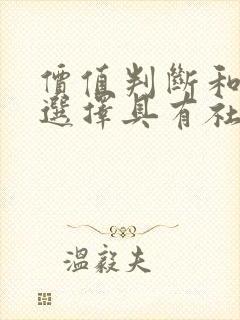 價值判斷和
選擇具有社
溫毅夫